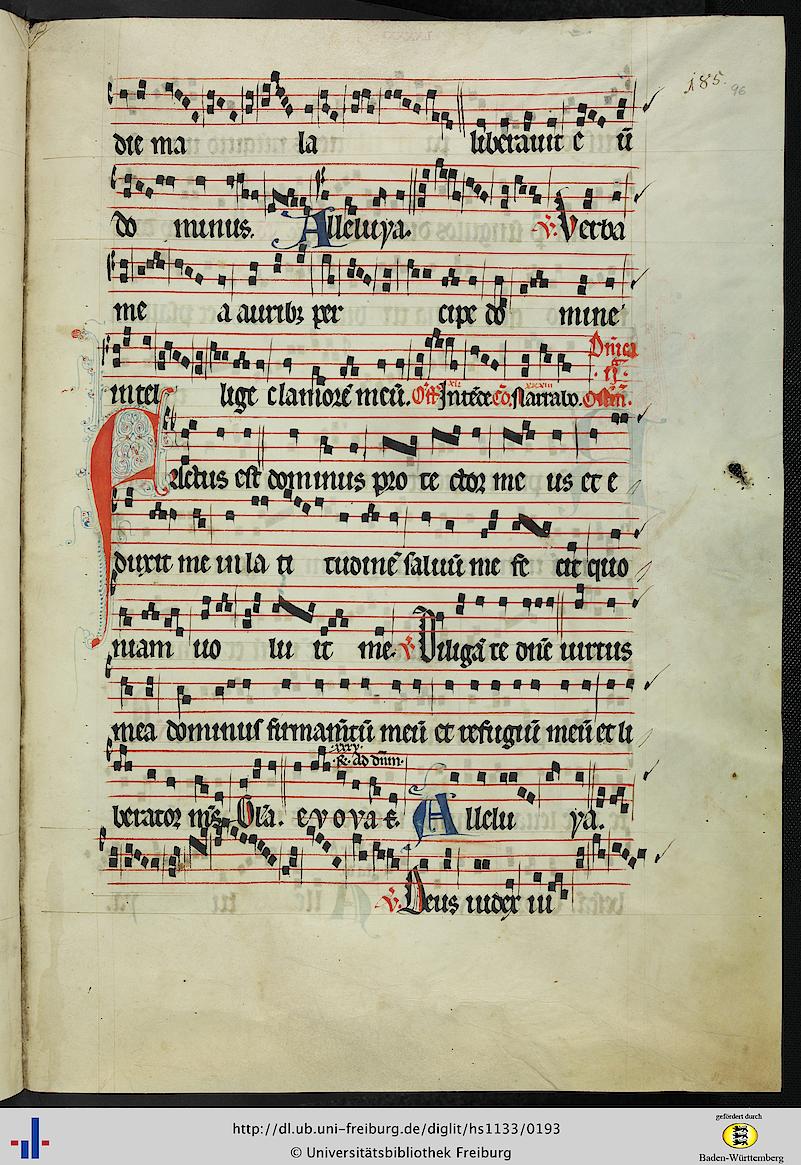 185.
96
die ma la liberauit e ū
do minus. Alleluya. ℣. Verba
me a aurib; per cipe do mine
intel lige clamorē meū. Off. Intēde Cō. Narrabo.
Dñica
.ij.
Factus est dominus pro te ctor me us et e
duxit me in la ti tudinē saluū me fe cit quo
niam uo lu it me. ℣. Diligā te dñe uirtus
mea dominus firmam̄tū meū et refugiū meū et li
xxxv.
berator m̄s. Gl̄a. e v o v a e. Ad dn̄m. Allelu ya.
℣. Deus iudex iu
http://dl.ub.uni-freiburg.de/diglit/hs1133/0193
© Universitätsbibliothek Freiburg
gefördert durch
Baden-Württemberg